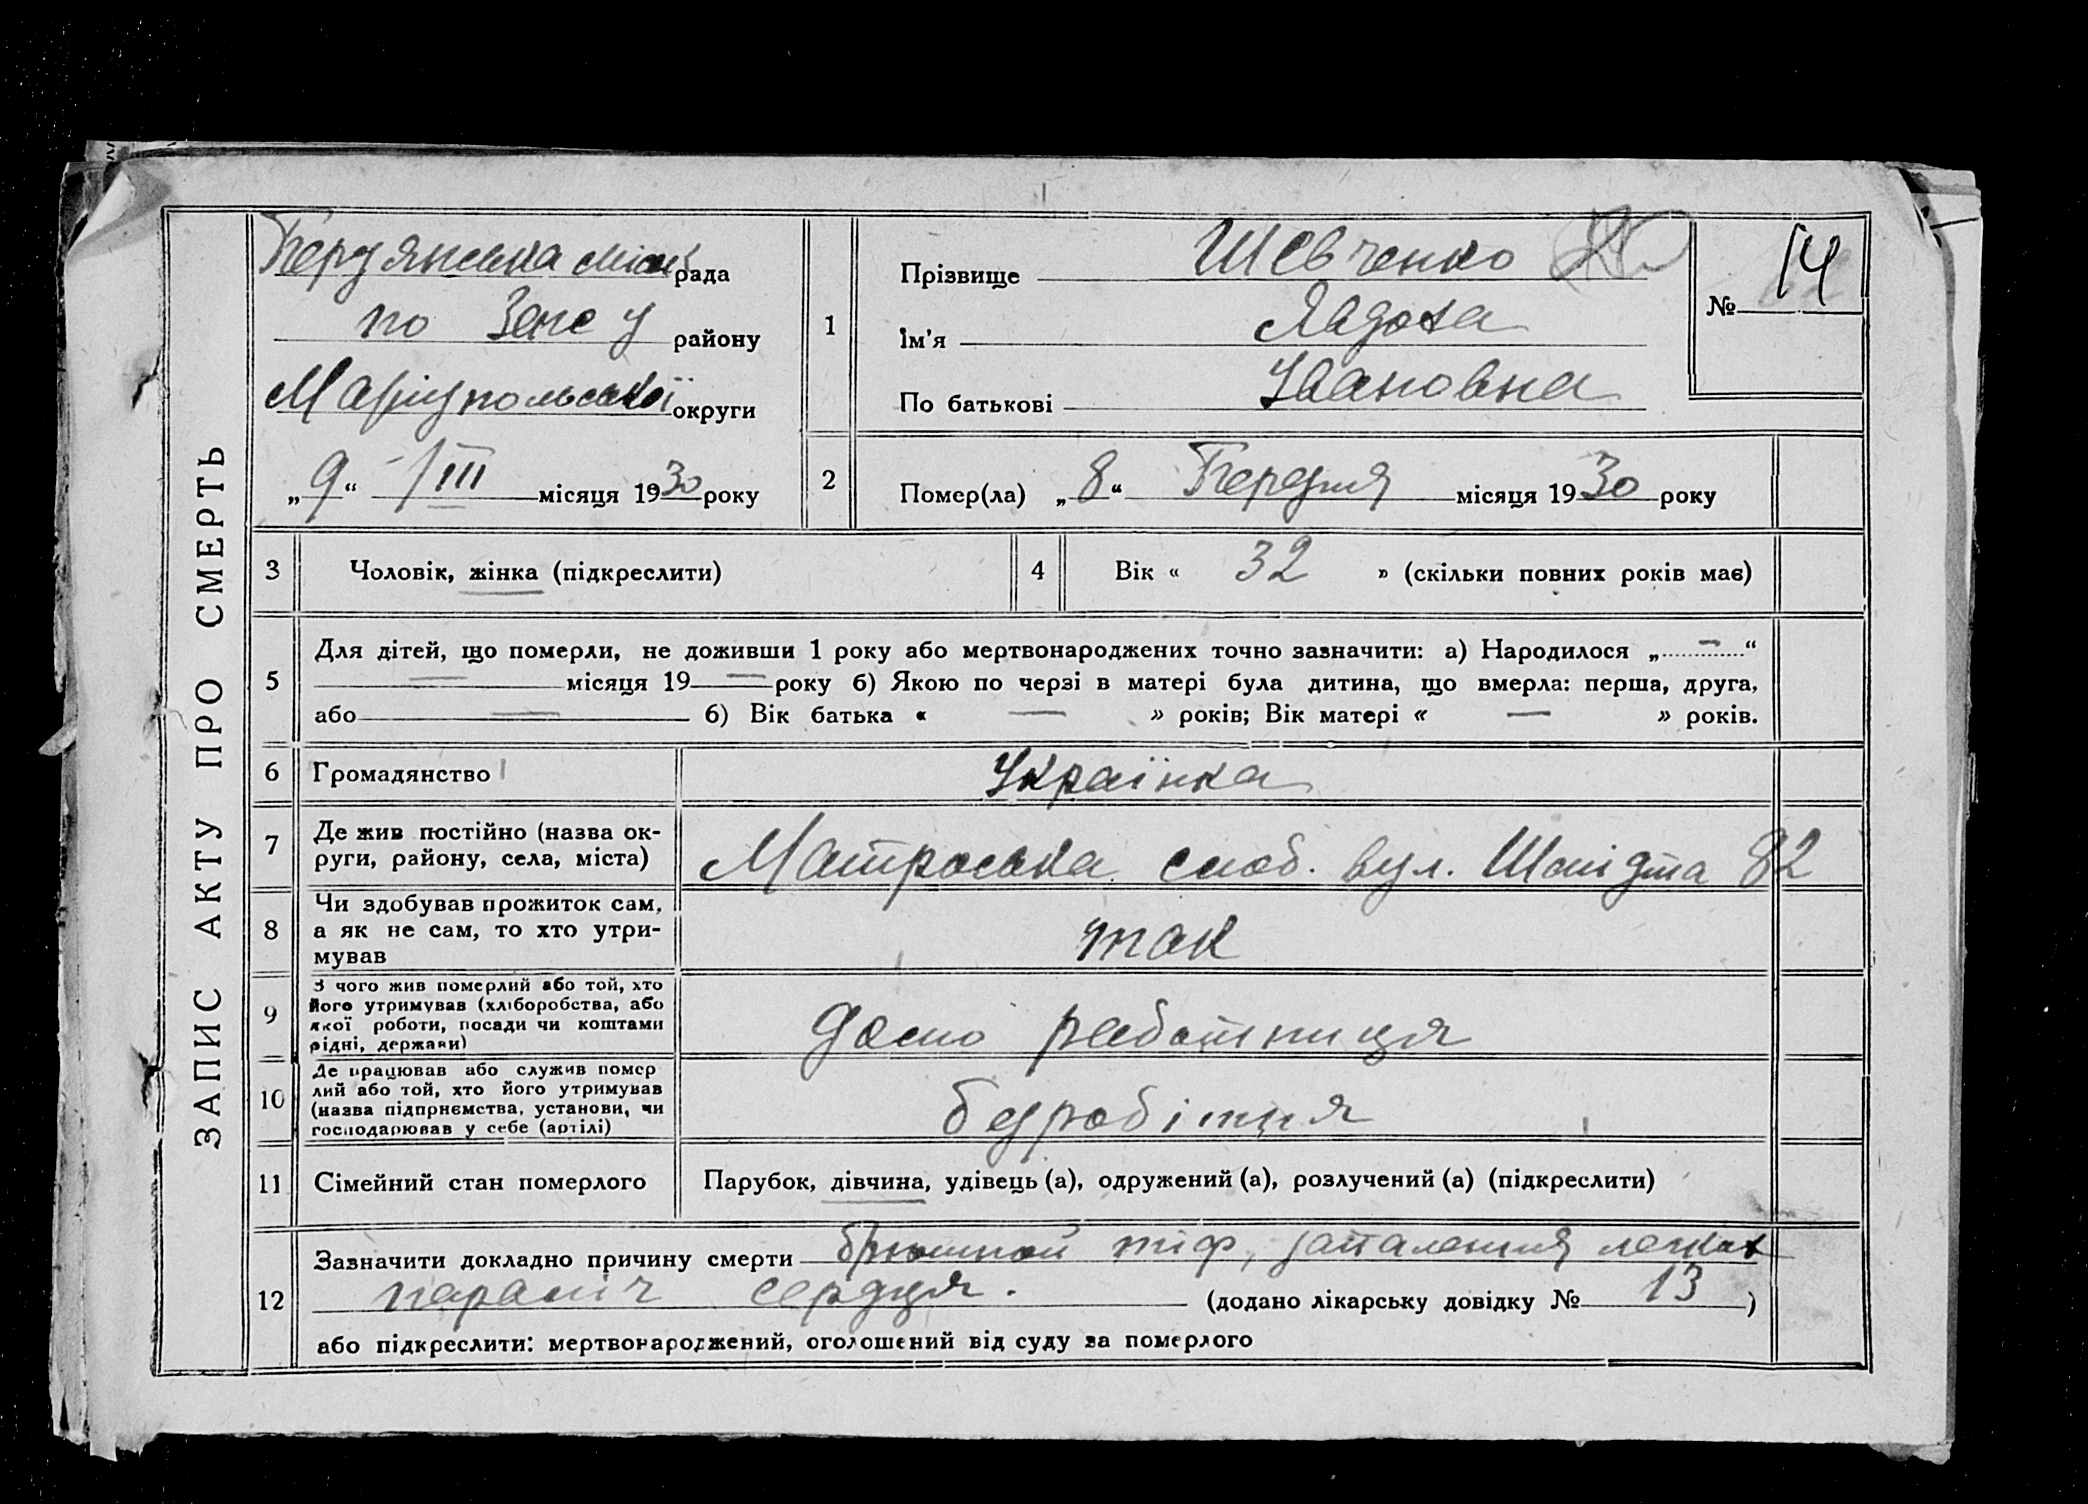 ЗАПИС АКТУ ПРО СМЕРТЬ
Бердянська міськ рада
по Загс у району
Маріупольської округи
„9“ /III місяця 1930 року
1
Прізвище Шевченко
Ім'я Явдоха
По батькові Івановна
№ 14
2
Помер(ла) „8“ Березня місяця 1930 року
3 Чоловік, жінка (підкреслити)
4 Вік « 32 » (скільки повних років має)
5
Для дітей, що померли, не доживши 1 року або мертвонароджених точно зазначити: а) Народилося „ — “
— місяця 19 — року б) Якою по черзі в матері була дитина, що вмерла: перша, друга,
або — б) Вік батька « — » років; Вік матері « — » років.
6 Громадянство Українка
7 Де жив постійно (назва ок-
руги, району, села, міста) Матроська слоб. вул. Шмідта 82
8 Чи здобував прожиток сам,
а як не сам, то хто утри-
мував так
9 З чого жив померлий або той, хто
його утримував (хліборобства, або
якої роботи, посади чи коштами
рідні, держави) домо работниця
10 Де працював або служив помер
лий або той, хто його утримував
(назва підприємства, установи, чи
господарював у себе (артілі) безробітня
11 Сімейний стан померлого Парубок, дівчина, удівець (а), одружений (а), розлучений (а) (підкреслити)
12
Зазначити докладно причину смерти брюшной тіф, запаления легких
параліч сердця. (додано лікарську довідку № 13)
або підкреслити: мертвонароджений, оголошений від суду за померлого